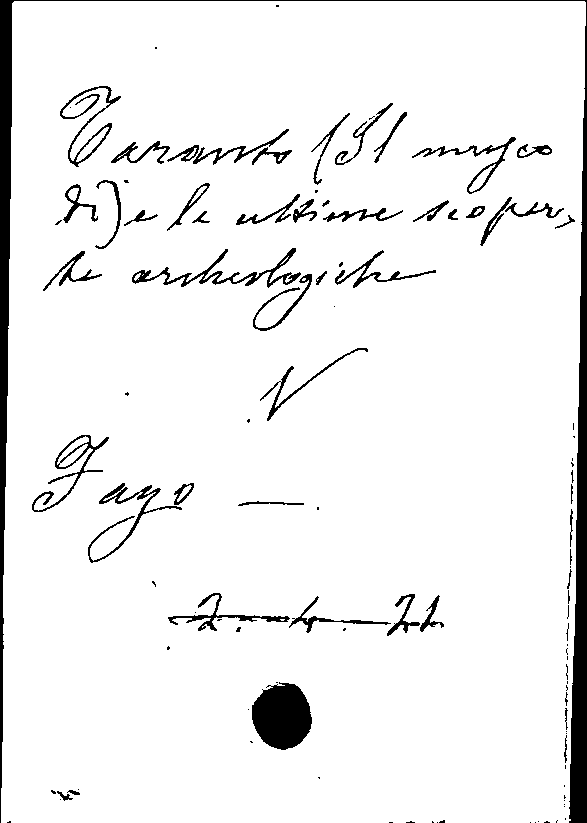 Taranto (Il museo
di) e le ultime scoper,
te archeologiche
V
Fago —
2. 4. 21